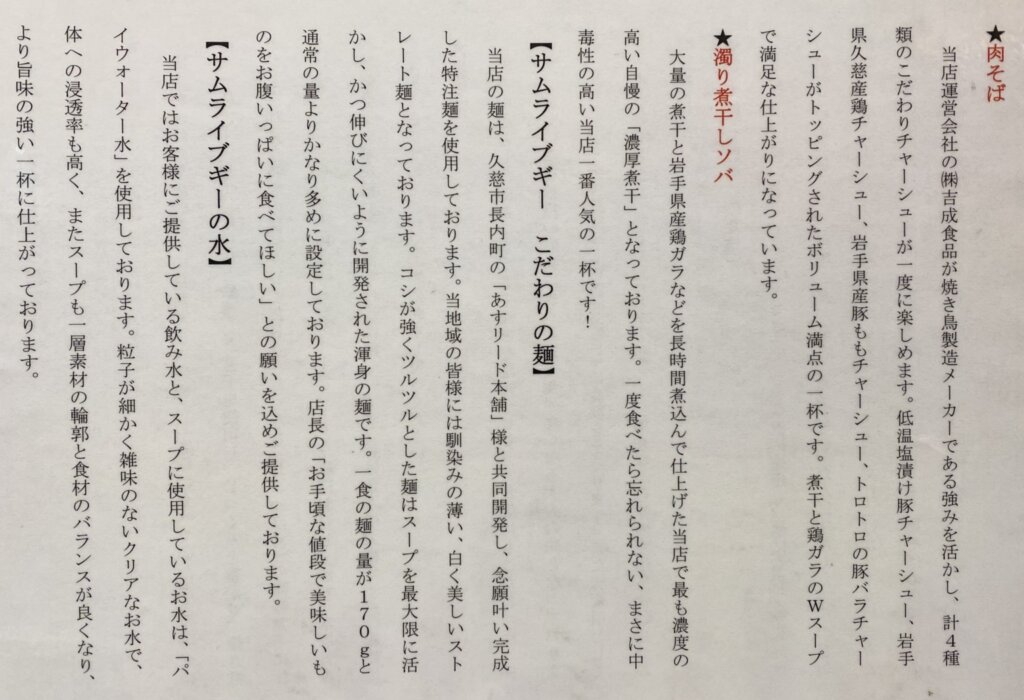 ★肉そば
当店運営会社の㈱吉成食品が焼き鳥製造メーカーである強みを活かし、計4種
類のこだわりチャーシューが一度に楽しめます。低温塩漬け豚チャーシュー、岩手
県久慈産鶏チャーシュー、岩手県産豚ももチャーシュー、トロトロの豚バラチャー
シューがトッピングされたボリューム満点の一杯です。煮干と鶏ガラのWスープ
で満足な仕上がりになっています。
★濁り煮干しソバ
大量の煮干と岩手県産鶏ガラなどを長時間煮込んで仕上げた当店で最も濃度の
高い自慢の「濃厚煮干」となっております。一度食べたら忘れられない、まさに中
毒性の高い当店一番人気の一杯です！
【サムライブギー　こだわりの麺】
当店の麺は、久慈市長内町の「あすリード本舗」様と共同開発し、念願叶い完成
した特注麺を使用しております。当地域の皆様には馴染みの薄い、白く美しいスト
レート麺となっております。コシが強くツルツルとした麺はスープを最大限に活
かし、かつ伸びにくいように開発された渾身の麺です。一食の麺の量が170gと
通常の量よりかなり多めに設定しております。店長の「お手頃な値段で美味しいも
のをお腹いっぱいに食べてほしい」との願いを込めご提供しております。
【サムライブギーの水】
当店ではお客様にご提供している飲み水と、スープに使用しているお水は、「パ
イウォーター水」を使用しております。粒子が細かく雑味のないクリアなお水で、
体への浸透率も高く、またスープも一層素材の輪郭と食材のバランスが良くなり、
より旨味の強い一杯に仕上がっております。